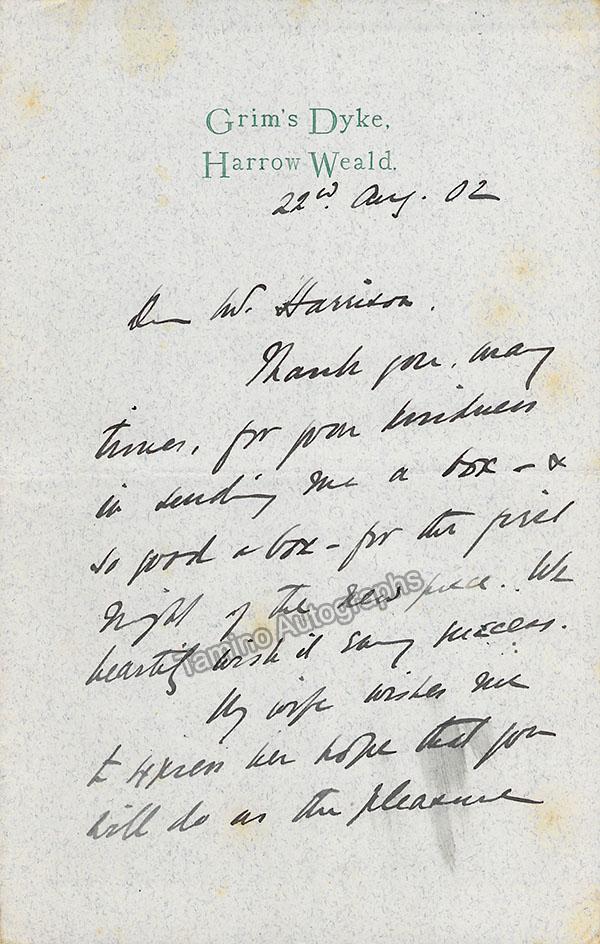 Grim's Dyke,
Harrow Weald.
22nd Aug. 02
Dear Mr. Harrison.
Thank you, many
times, for your kindness
in sending me a box - &
so good a box - for the first
night of the new piece. We
heartily wish it every success.
My wife wishes me
to express her hope that you
will do us the pleasure
Tamino Autographs